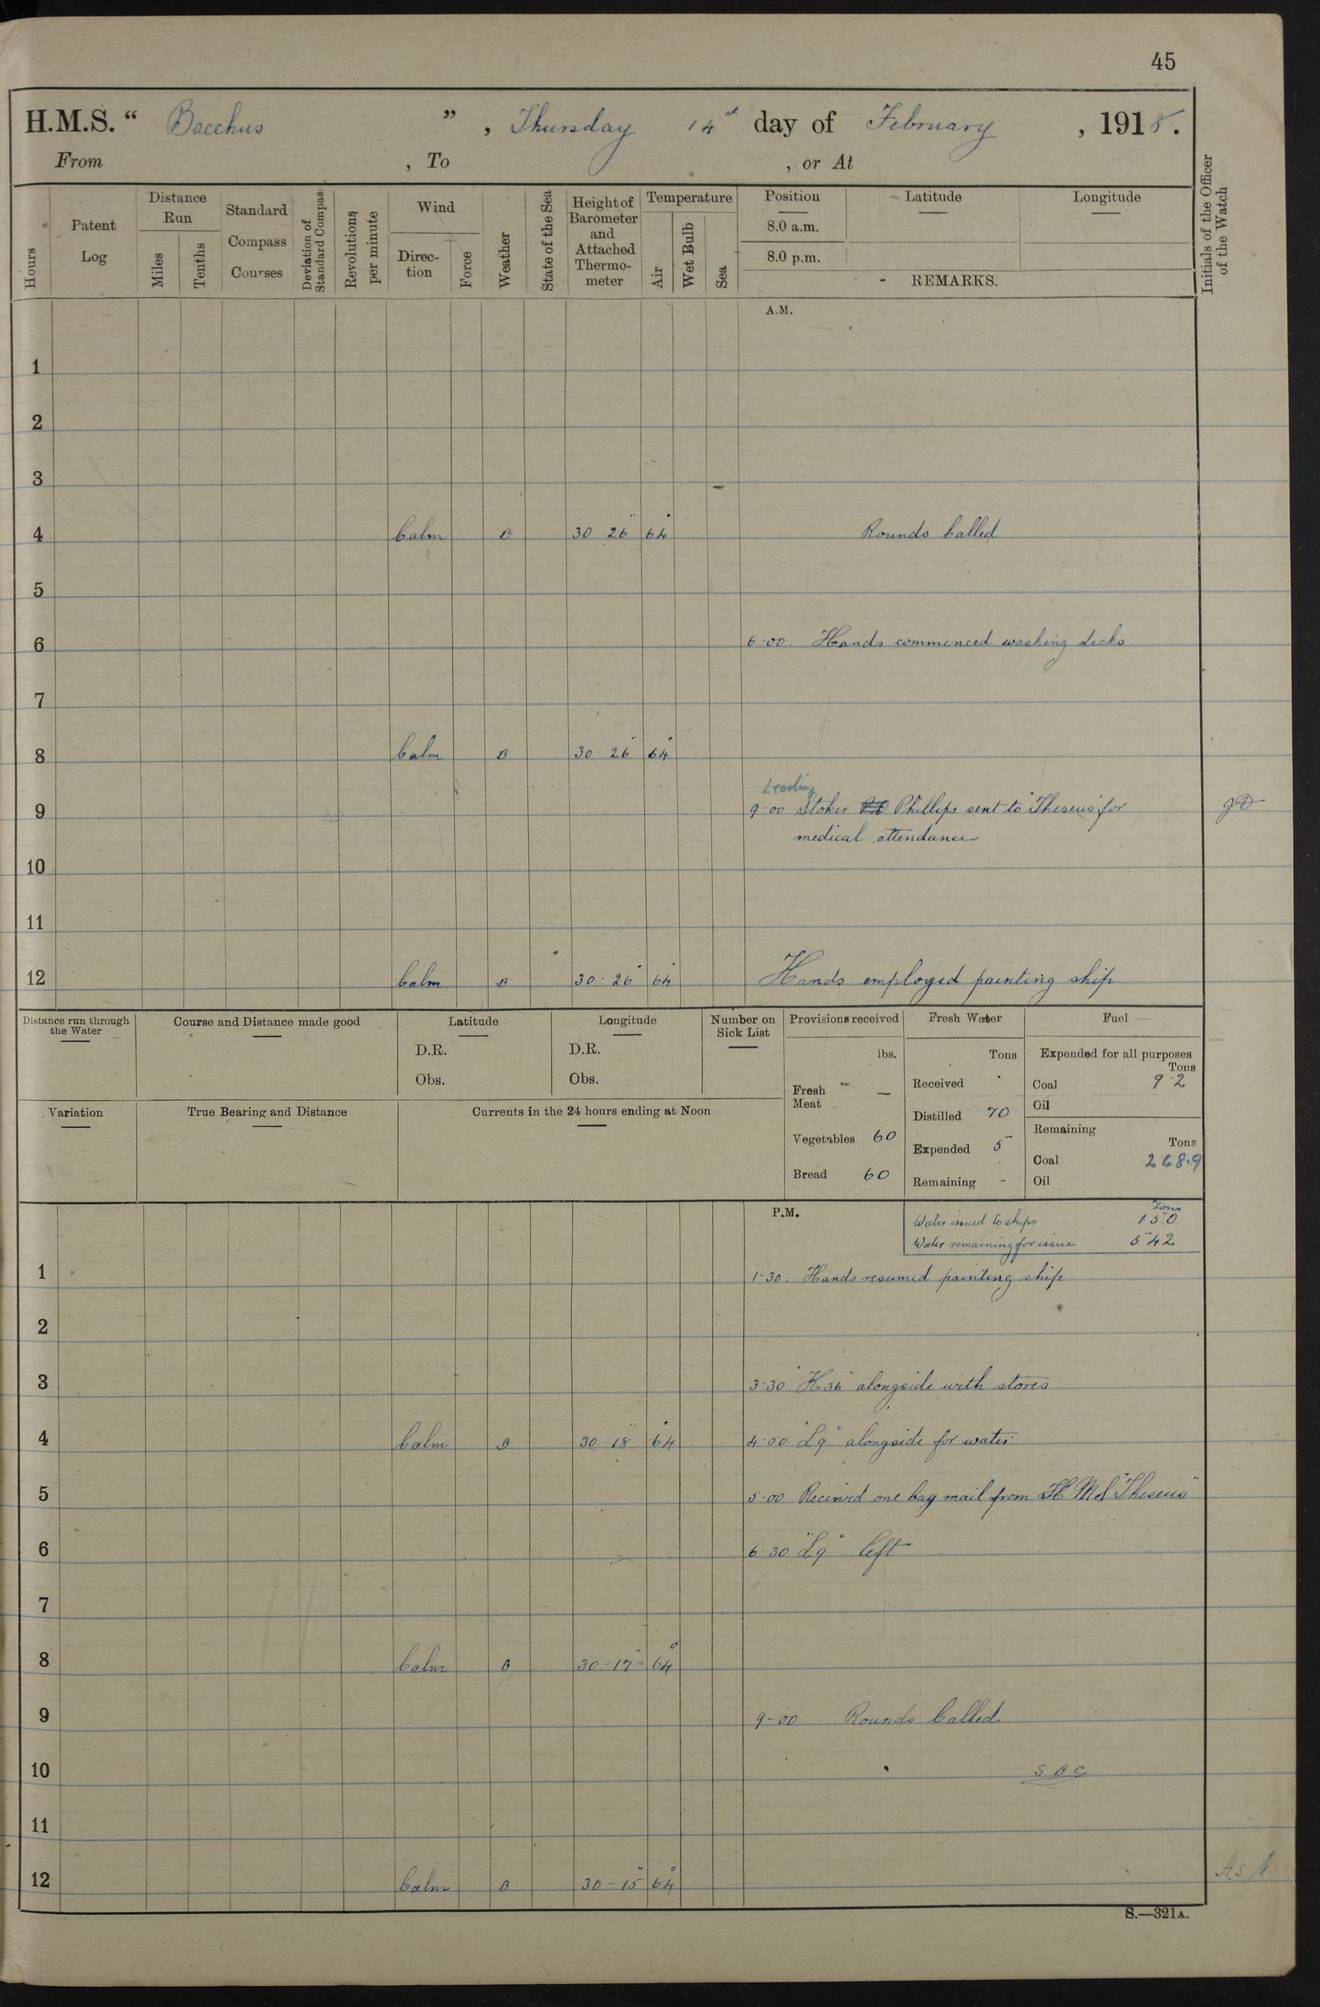 45
H.M.S. “ Bacchus ” , Thursday 14th day of February , 1918.
From , To , or At
Hours
Patent Log
Distance Run
Miles
Tenths
Standard Compass Courses
Deviation of Standard Compass
Revolutions per minute
Wind
Direction
Force
Weather
State of the Sea
Height of Barometer and Attached Thermometer
Temperature
Air
Wet Bulb
Sea
Position
8.0 a.m.
8.0 p.m.
Latitude
Longitude
REMARKS.
Initials of the Officer of the Watch
A.M.
1
2
3
4 Calm B 30-26" 64° Rounds Called
5
6 6-00. Hands commenced washing decks
7
8 Calm B 30-26" 64°
Leading
9 9-00 Stoker Phillips sent to "Theseus" for
medical attendance
10
11
12 Calm B 30-26" 64° Hands employed painting ship
Distance run through the Water
Course and Distance made good
Latitude
D.R.
Obs.
Longitude
D.R.
Obs.
Number on Sick List
Provisions received
lbs.
Fresh Meat —
Vegetables 60
Bread 60
Fresh Water
Tons
Received
Distilled 70
Expended 5
Remaining -
Fuel
Expended for all purposes
Tons
Coal 9.2
Oil
Remaining
Tons
Coal 268.9
Oil
Variation
True Bearing and Distance
Currents in the 24 hours ending at Noon
P.M.
Tons
Water issued to ships 150
Water remaining for issue 542
1 1-30. Hands resumed painting ship
2
3 3-30 "K36" alongside with stores
4 Calm B 30-18" 64° 4-00 "L9" alongside for water
5 5-00 Received one bag mail from H.M.S "Theseus"
6 6-30 "L9" left
7
8 Calm B 30-17" 64°
9 9-00 Rounds Called
10
11
12 Calm B 30-15" 64°
S.—321A.